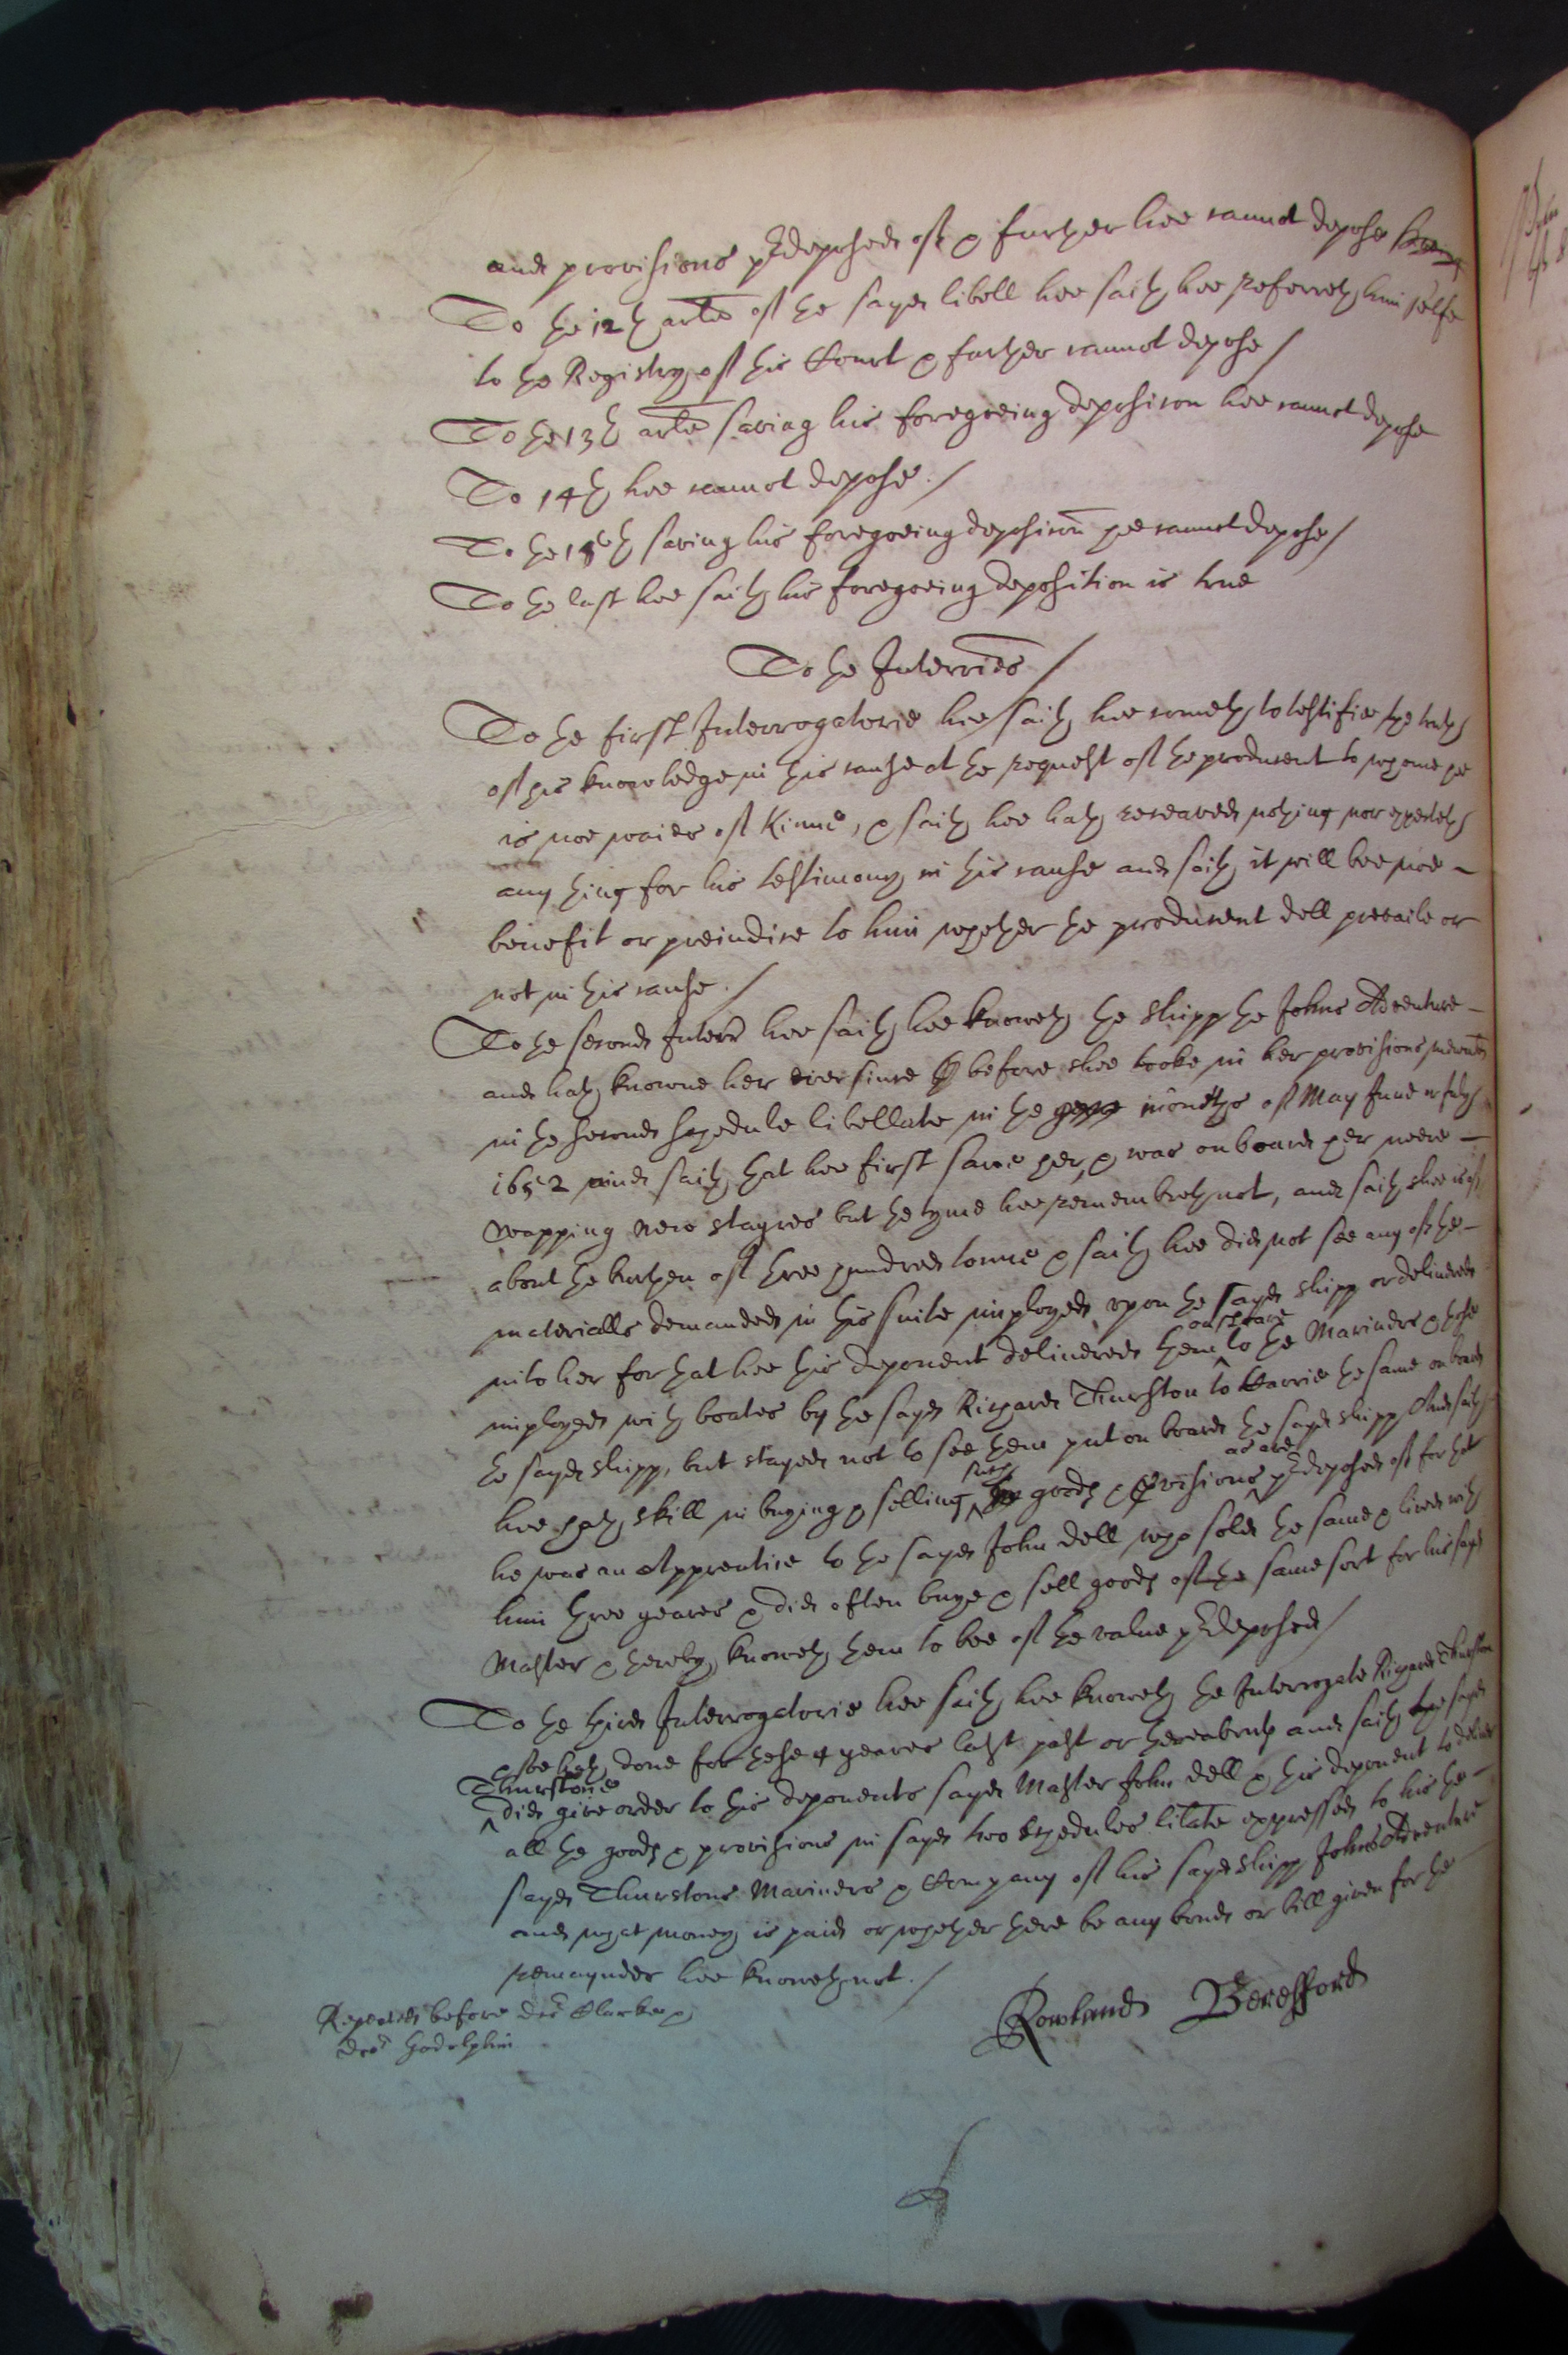 and provisions predeposed of & further hee cannot depose
To the 12th arle of the sayd libell hee saith hee referreth himselfe
to the Registry of this Court & further cannot depose /
To the 13th arle saving his foregoeing deposicon hee cannot depose
To 14th hee cannot depose. /
To the 15th saving his foregoeing deposicon hee cannot depose /
To the last hee saith his foregoeing deposition is true
To the Interries /
To the first Interrogatorie hee saith hee cometh to testifie the truth
of his knowledge in this cause at the request of the producent to whome he
is noe waies of Kinne, & saith hee hath receaved nothing nor expecteth
any thing for his testimony in this cause and saith it will bee noe -
benefit or preiudice to him whether the producent dell prevaile or
not in this cause. /
To the second Interr hee saith hee knoweth the shipp the Johns Adventure -
and hath knowne her ever since before shee tooke in her provisions menconed
in the second schedule libellate in the moneths of May June or July
1652 and saith that hee first sawe her, & was on board her neere -
Wapping New stayres but the tyme hee remembreth not, and saith shee is of
about the burthen of three hundred tonnes & saith hee did not see any of the -
materialls demanded in this suite imployed upon the sayd shipp or delivered
into her for that hee this deponent delivered them on shoare to the Mariners & those
imployed with boates by the sayd Richard Thurston to Carrie the same on board
the sayd shipp, but stayed not to see them put on board the sayd shipp And saith
hee hath skill in buying & selling such goods & provisions as are predeposed of for that
he was an Apprentice to the sayd John dell who sold the same & lived with
him three yeares & did often buye & sell goods of the same sort for his sayd
Master & thereby knoweth them to bee of the value predeposed /
To the third Interrogatorie hee saith hee knoweth the Interrogate Richard Thurston
& soe hath done for these 4 yeares last past or thereabouts and saith the sayd
Thurstone did give order to this deponents sayd Master John dell & this deponent to deliver
all the goods & provisions in sayd two schedules litate expressed to his the -
sayd Thurstons Mariners & Company of his sayd shipp Johns Adventure
and what money is paid or whether there be any bond or bill given for the
remaynder hee knoweth not. /
Repeated before dor Clarke &
dor Godolphin
Rowland Beresford